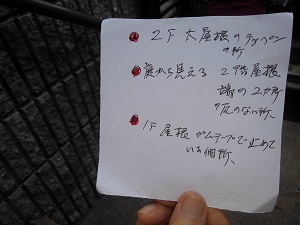 2F 大屋根のテッペン
の所
庭から見える 2階屋根
端の2カ所
の瓦のない所、
1F 屋根 ガムテープで止めて
いる個所、